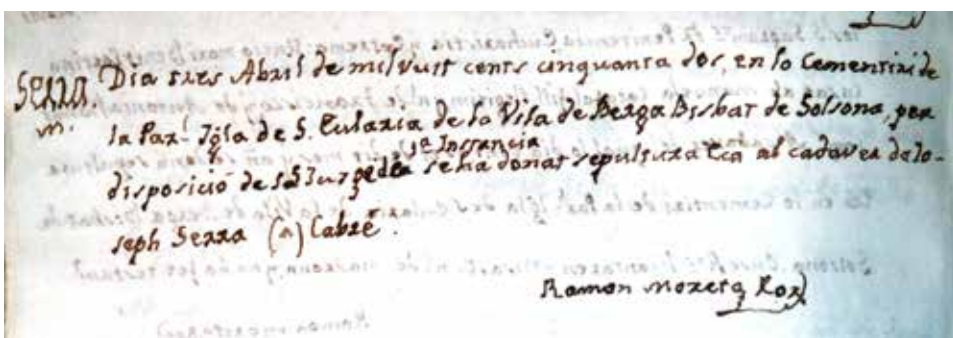 Serra. Dia tres Abril de mil vuit cents cinquanta dos, en lo Cementiri de
m.
la Par.l Igla de S. Eularia de la Vila de Berga Bisbat de Solsona, per
1.a Instancia
disposició de se ha donat sepultura Eca al cadaver de Jo-
seph Serra (a) Cabré.
Ramon Moreta Ror